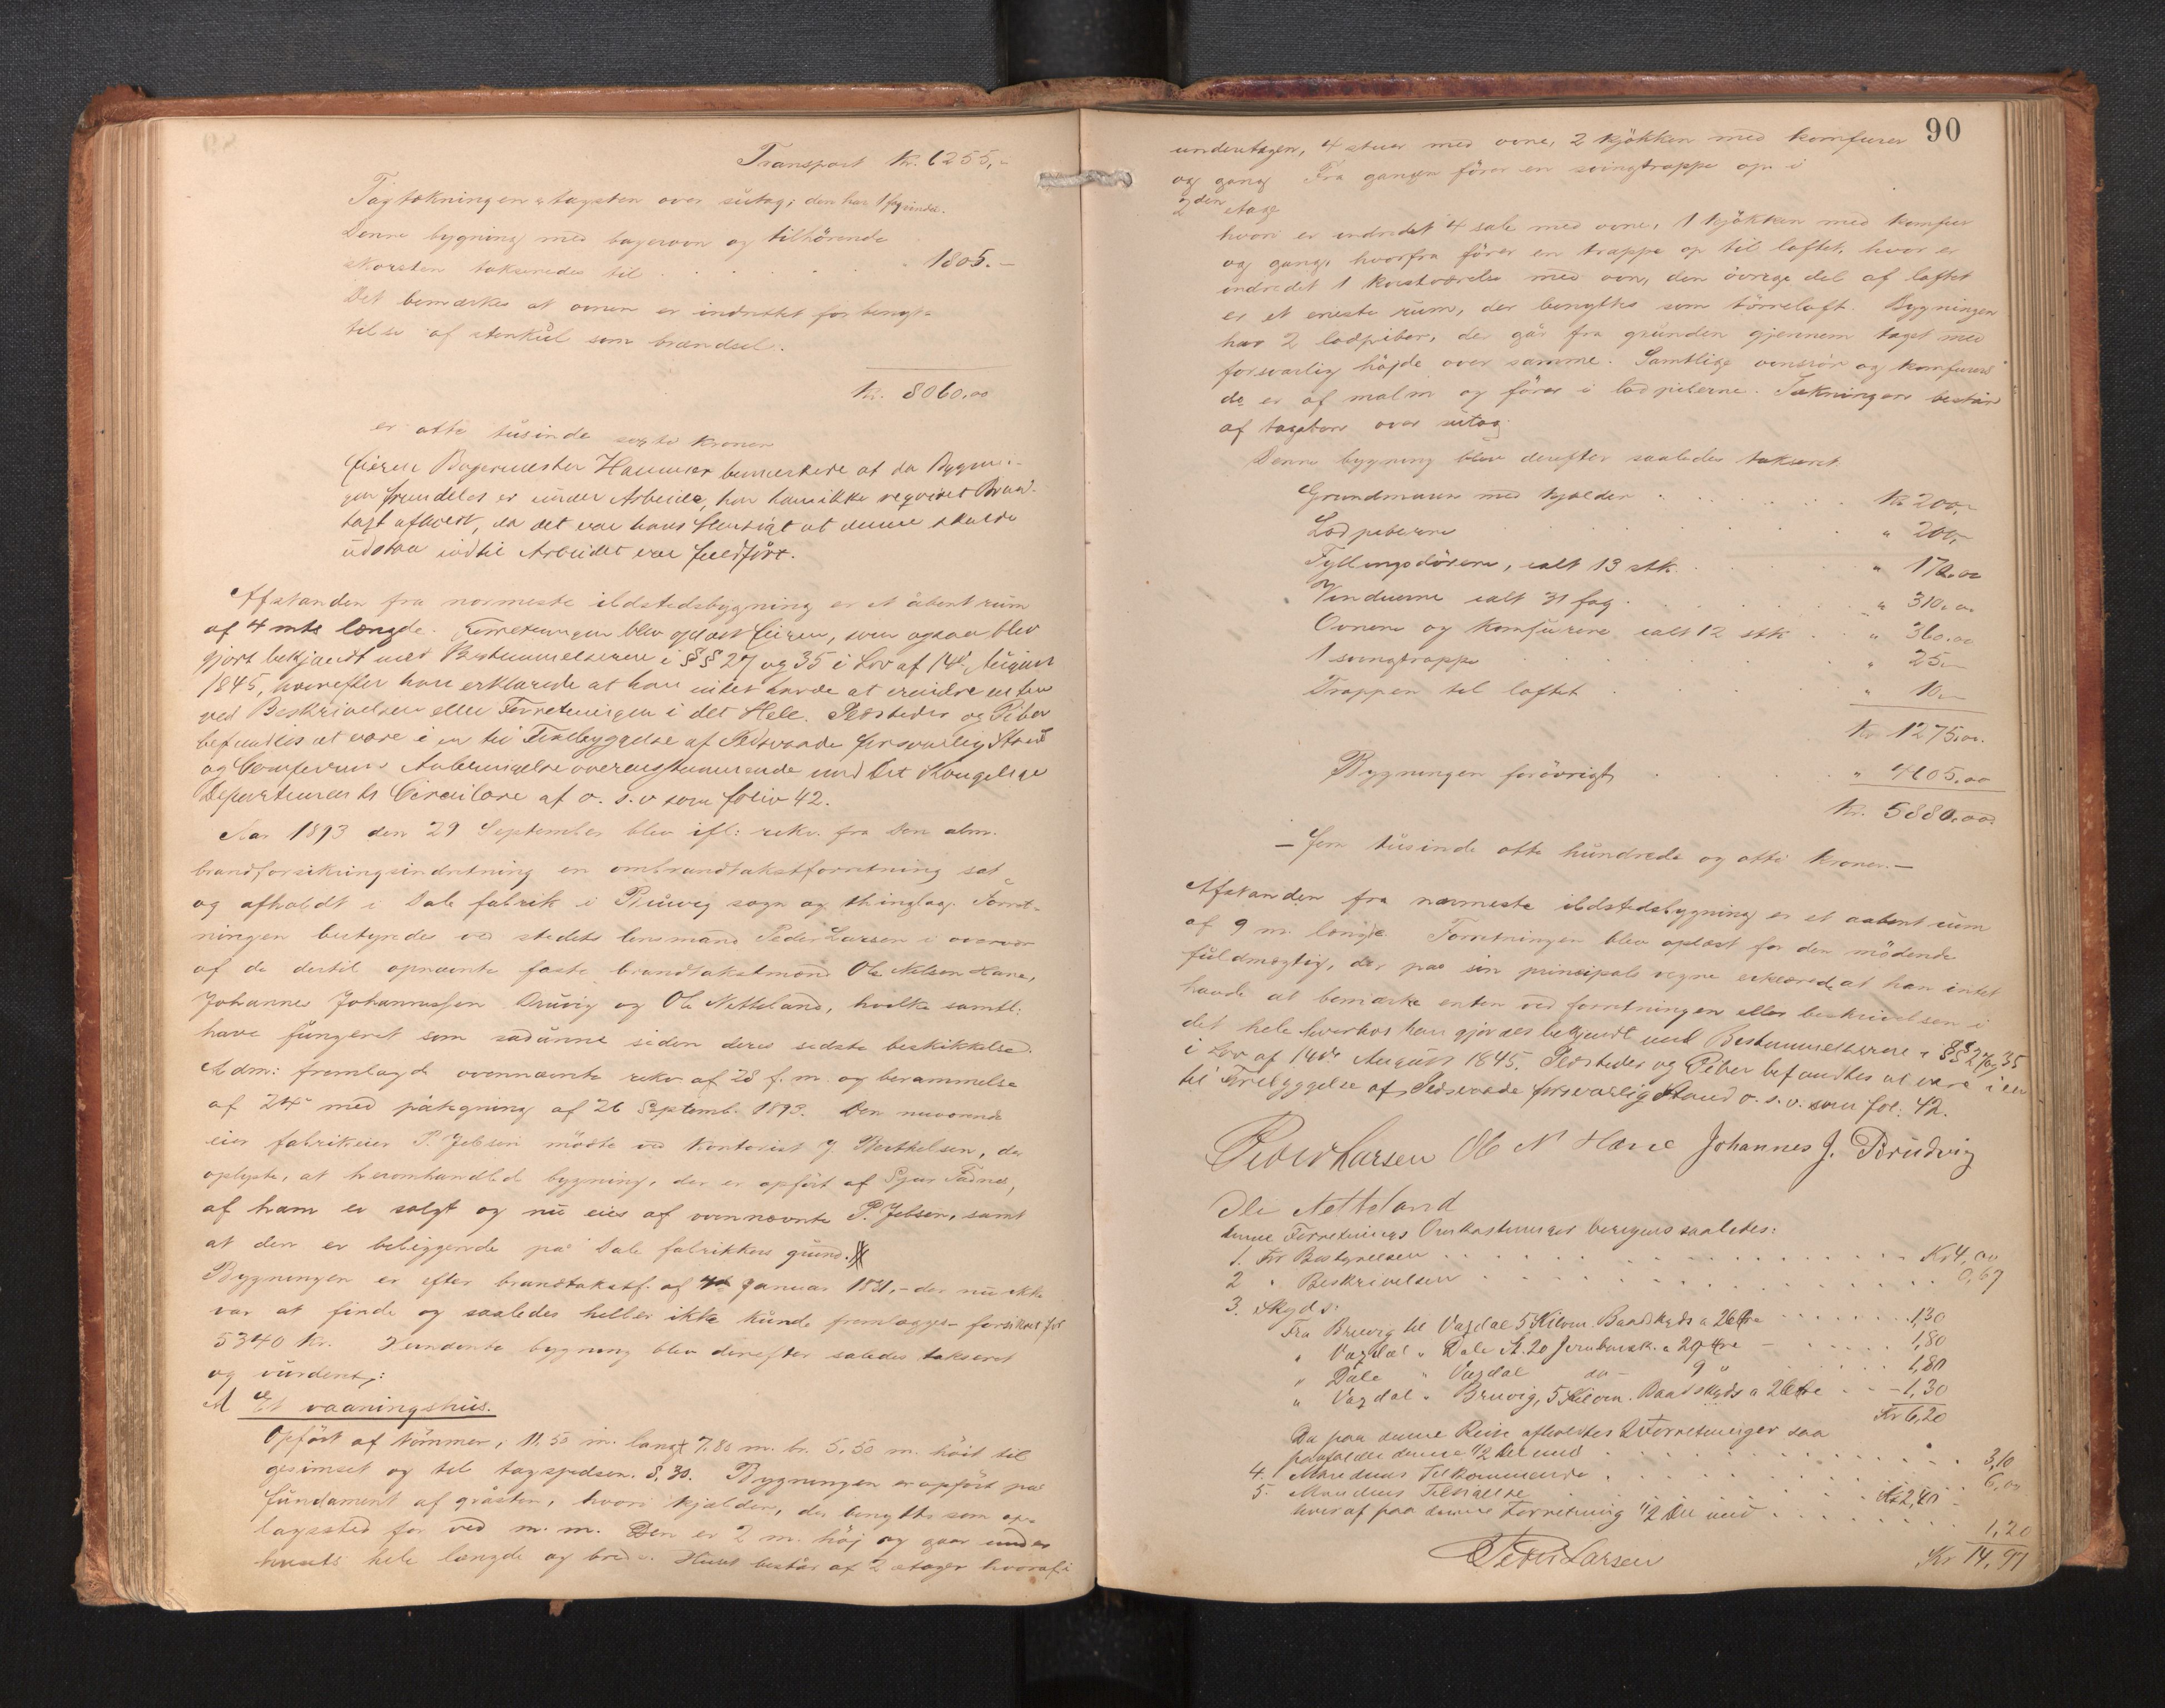 Transport Kr. 6255,-
Tagtækningen er tagsten over sutag; den har 1 fag vindu.
Denne bygning med bagerovn og tilhörende
skorsten takseredes til . . . . . . 1805.-
Det bemærkes at ovnen er indrettet for benyt-
telse af stenkul som brændsel.
Kr. 8060.00
er otte tusinde sexti kroner
Eieren Bagermester Hammer bemerkede at da Bygnin-
gen fremdeles er under Arbeide, har han ikke reqvireret Brand-
taxt afholdt, da det var hans Hensigt at denne skulde
udstaa indtil Arbeidet var fuldført.
Afstanden fra nærmeste ildstedsbygning er et åbent rum
af 4 mtr længde. Forretningen blev oplæst Eieren, som ogsaa blev
gjort bekjendt med Bestemmelserne i §§ 27 og 35 i Lov af 14de August
1845, hvorefter han erklærede at han intet havde at erindre enten
ved Beskrivelsen eller Forretningen i det Hele. Ildsteder og Piber
befandtes at være i en til Forebyggelse af Ildsvaade forsvarlig Stand
og Comfurens Anbringelse overensstemmende med Det Kongelige
Departements Circulære af o. s. v som folio 42.
Aar 1893 den 29 September blev ifl: rekv. fra Den alm.
brandforsikringsindretning en ombrandtakstforretning sat
og afholdt i Dale fabrik i Bruvig sogn og thinglag. Forret-
ningen bestyredes ved stedets lensmand Peder Larsen i overvær
af de dertil opnævnte faste brandtakstmænd Ole Nelsen Hare,
Johannes Johannessen Bruvig og Ole Netteland, hvilke samtl:
have fungeret som sådanne siden deres sidste beskikkelse.
Adm: fremlagde ovennævnte rekv af 28 f. m. og berammelse
af 24de med påtegning af 26 Septemb. 1893. Den nuværende
eier fabrikeier P. Jebsen mödte ved Kontorist J. Berthelsen, der
oplyste, at heromhandlede bygning, der er opfört af Sjur Fadnes,
af ham er solgt og nu eies af ovennævnte P. Jebsen, samt
at den er beliggende på Dale fabrikkers grund.
Bygningen er efter brandtakstf. af 4de Januar 1881,- der nu ikke
var at finde og saaledes heller ikke kunde fremlægges- forsikret for
5340 Kr. bygning blev derefter saledes takseret
og vurderet:
A Et vaaningshus.
Opfört af tömmer, 11.50 m. langt 7.80 m. br. 5.50 m. höit til
gesimset og til tagspidsen 8,30. Bygningen er opfört paa
fundament af gråsten, hvori kjælder, der benyttes som op-
lagssted for ved m. m. Den er 2 m. höj og gaar under
husets hele længde og bredde. Huset består af 2 etager hvoraf i
90
underetagen, 4 stuer med ovne, 2 kjökken med komfurer
og gang Fra gangen förer en svingtrappe op i
2den etage
hvori er indredet 4 sale med ovne, 1 kjökken med komfur
og gang, hvorfra förer en trappe op til loftet, hvor er
indredet 1 kvistværelse med ovn, den övrige del af loftet
er et eneste rum, der benyttes som törreloft. Bygningen
har 2 lodpiber, der går fra grunden gjennem taget med
forsvarlig höjde over samme. Samtlige ovnsrör og komfurerö
de er af malm og föres i lodpiberne. Tækningen består
af tagsten over sutag.
Denne bygning blev derefter saaledes takseret
Grundmuren med kjælder . . . . Kr 200,-
Lodpiberne . . . . " 200,-
Fyllingsdörene, ialt 13 stk. . . . " 170.00
Vinduerne ialt 31 fag. . . . " 310.00
Ovnene og komfurene ialt 12 stk . . " 360.00
1 svingtrappe . . . . " 25.-
Trappen til loftet . . . . " 10.-
Kr 1275.00.
Bygningen forövrigt . . . " 4605.00
Kr. 5880.00.
- fem tusinde otte hundrede og otti kroner.-
Afstanden fra nærmeste ildstedsbygning er et aabent rum
af 9 m. længde. Forretningen blev oplæst for den mödende
fuldmægtig, der paa sin principals vegne erklærede, at han intet
havde at bemærke enten ved forretningen eller beskrivelsen i
det hele hvorhos han gjordes bekjendt med Bestemmelserne i §§ 27 og 35
i Lov af 14de August 1845. Ildsteder og Piber befandtes at være i en
til Forebyggelse af Ildsvaade forsvarlig Stand o. s. v. som fol. 42.
Peder Larsen Ole N Hare Johannes J. Bruvig
Ole Netteland
denne Forretnings Omkostninger beregnes saaledes:
1. For Bestyrelsen . . . . Kr 4,00
2 " Beskrivelsen . . . . 0,67
3. Skyds:
Fra Bruvig til Vagdal 5 Kilom. Baadskyds a 26 Øre . . . 1,30
" Vagdal " Dale St. 20 Jernbanek. a 9 Øre - . . . 1,80
" Dale " Vagdal do - 9 " . . . 1,80
" Vagdal " Bruvig, 5 Kilom. Baadskyds a 26 Øre . . - 1,30
Kr 6,20
Da paa denne Reise afholdtes 2 Forretninger saa
paafalder denne 1/2 Del med . . . . 3,10
4. Mændenes Tilkommende . . . . 6,00
5. Mændenes Tilsigelse . . . . Kr 2,40
hvoraf paa denne Forretning 1/2 Del med . . . . 1,20
Kr 14,97
Peder Larsen